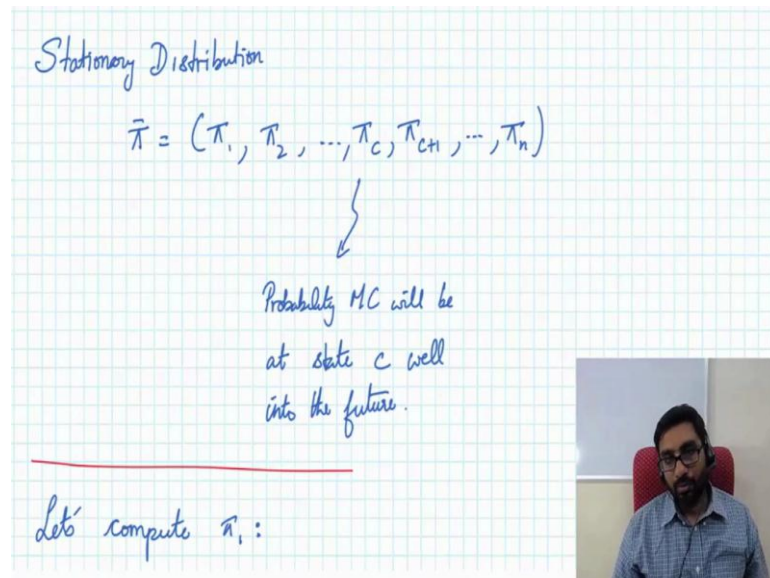 Stationary Distribution
π̄ = (π₁, π₂, ..., π_c, π_{c+1}, ..., π_n)
Probability MC will be
at state c well
into the future.
Let's compute π₁: